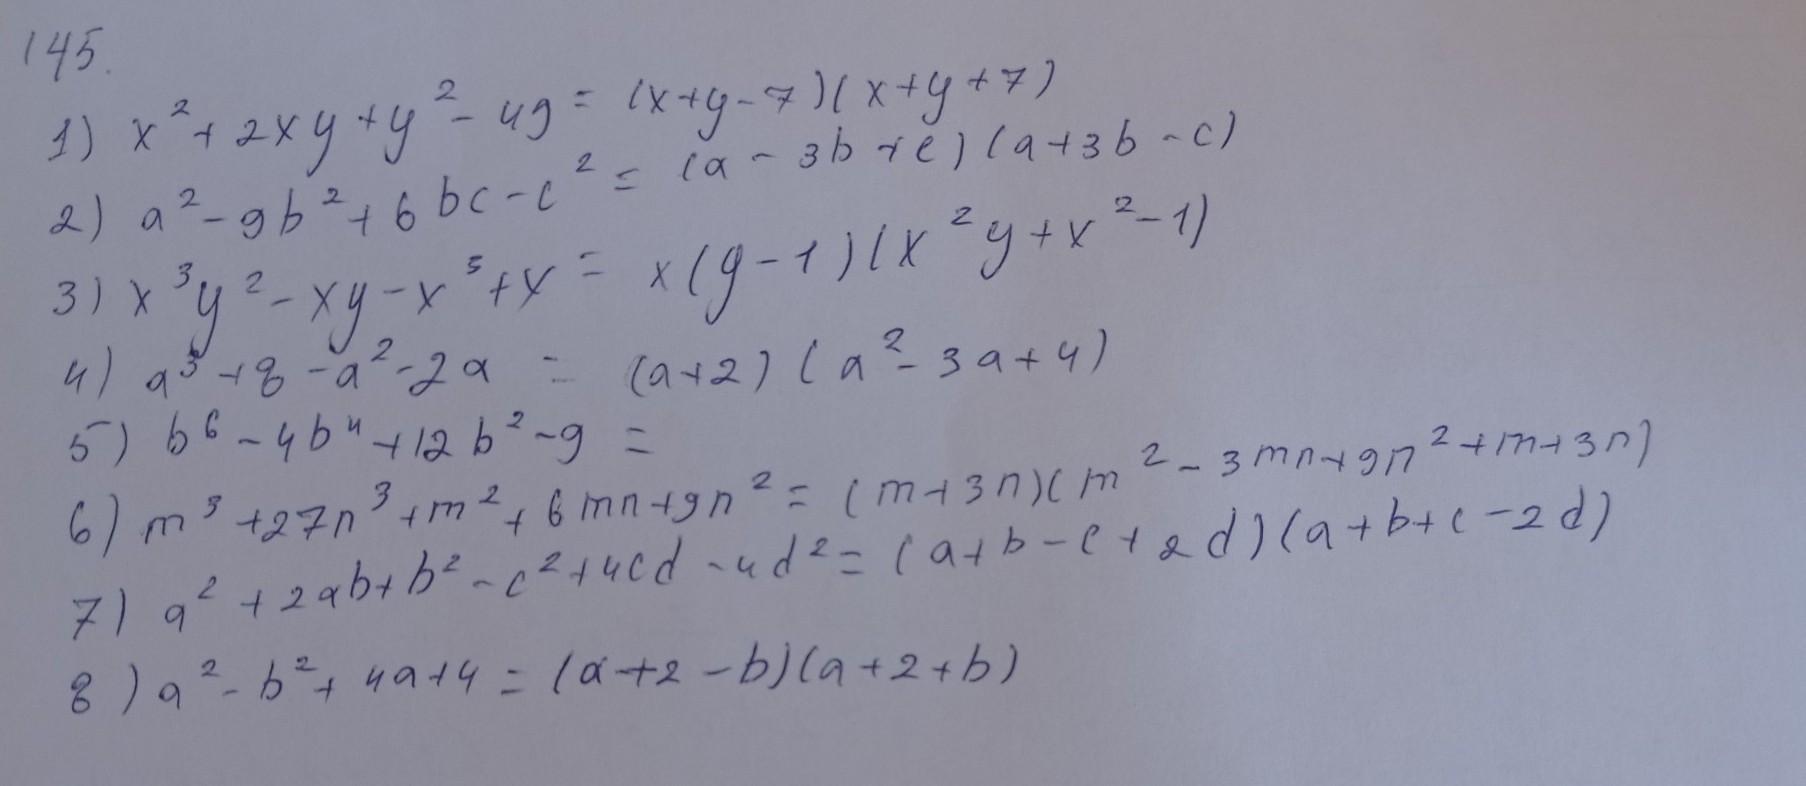 145.
1) x² + 2xy + y² - 49 = (x+y-7)(x+y+7)
2) a² - 9b² + 6bc - c² = (a - 3b + c)(a + 3b - c)
3) x³y² - xy - x³ + x = x(y-1)(x²y + x² - 1)
4) a³ + 8 - a² - 2a = (a+2)(a² - 3a + 4)
5) b⁶ - 4b⁴ + 12b² - 9 =
6) m³ + 27n³ + m² + 6mn + 9n² = (m+3n)(m² - 3mn + 9n² + m + 3n)
7) a² + 2ab + b² - c² + 4cd - 4d² = (a+b-c+2d)(a+b+c-2d)
8) a² - b² + 4a + 4 = (a+2-b)(a+2+b)